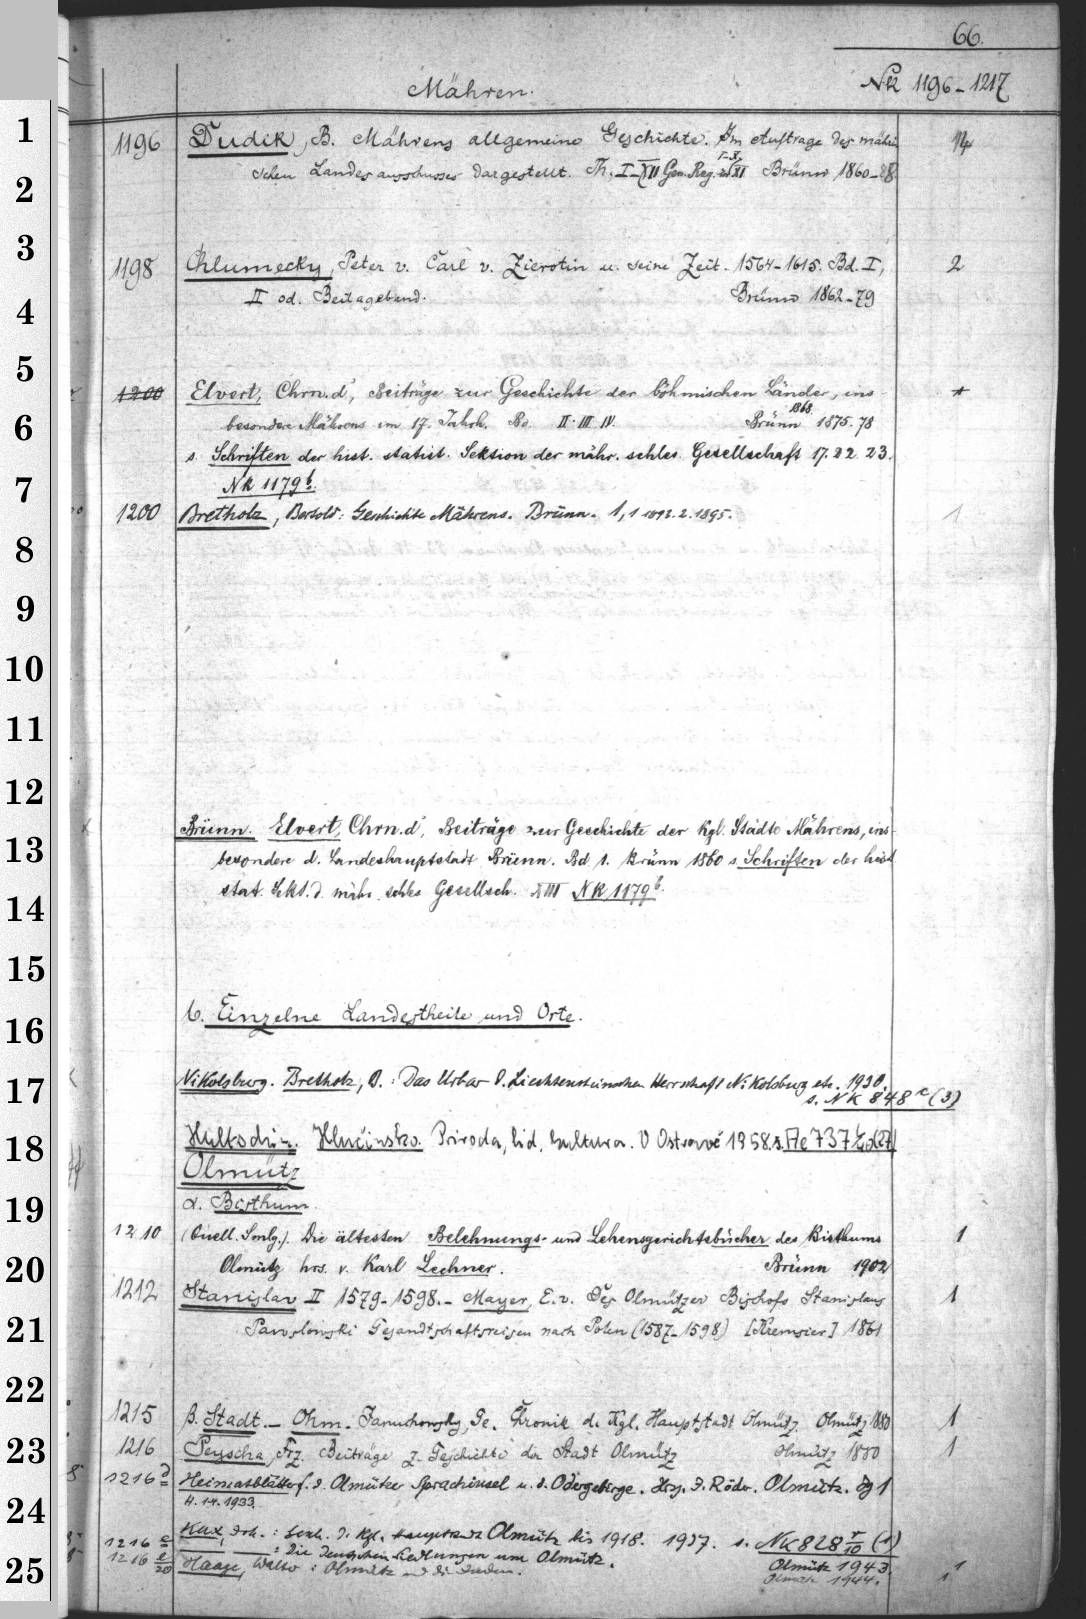 66.
Mähren. Nk 1196-1217
1196 Dudik, B. Mährens allgemeine Geschichte. Im Auftrage des mähri
schen Landesausschusses dargestellt. Th. I-XII Gen. Reg. Brünn 1860-88
1198 Chlumecky, Peter v. Carl v. Zierotin u. seine Zeit. 1564-1615. Bd. I, 2
II od. Beilageband. Brünn 1862-79
1200 Elvert, Chrn. d', Beiträge zur Geschichte der böhmischen Länder, ins-
besondere Mährens im 17. Jahrh. Bd. II. III. IV. Brünn 1868. 1875. 78
s. Schriften der hist. statist. Sektion der mähr. schles. Gesellschaft 17. 22. 23.
Nk 1179 b.
1200 Bretholz, Bertold: Geschichte Mährens. Brünn. 1,1 1893. 2. 1895. 1
Brünn. Elvert, Chrn. d', Beiträge zur Geschichte der kgl. Städte Mährens, ins-
besondere d. Landeshauptstadt Brünn. Bd 1. Brünn 1860 s. Schriften der hist
stat. Sekt. d. mähr. schles Gesellsch. XIII NK 1179 b.
b. Einzelne Landestheile und Orte.
Nikolsburg. Bretholz, B.: Das Urbar d. Liechtensteinschen Herrschaft Nikolsburg etc. 1930.
s. NK 848 (3)
Hultschin. Hlučínsko. Příroda, lid, kultura. V Ostravě 1958. s.
Olmütz
α. Bisthum.
1210 (Quell. Smlg.). Die ältesten Belehnungs- und Lehensgerichtsbücher des Bisthums 1
Olmütz hrs. v. Karl Lechner. Brünn 1902
1212 Stanislav II 1579-1598. - Mayer, E. v. Des Olmützer Bischofs Stanislaus 1
Pawlowski Gesandtschaftsreisen nach Polen (1587-1598) [Kremsier] 1861
1215 β. Stadt. - Ohm-Januschowsky, Ge. Chronik d. Kgl. Hauptstadt Olmütz. Olmütz 1
1216 Peyscha, Frz. Beiträge z. Geschichte der Stadt Olmütz Olmütz 1880 1
1216 d Heimatblätter f. d. Olmützer Sprachinsel u. d. Odergebirge. Hrsg. J. Röder. Olmütz. 1
4. 14. 1933.
1216 e Kux, Joh.: Gesch. d. kgl. Hauptstadt Olmütz bis 1918. 1937. s. NK 828 (1)
1216 : Die deutschen Siedlungen um Olmütz. Olmütz 1943. 1
Haage, Walter: Olmütz und die Juden. Olmütz 1944. 1